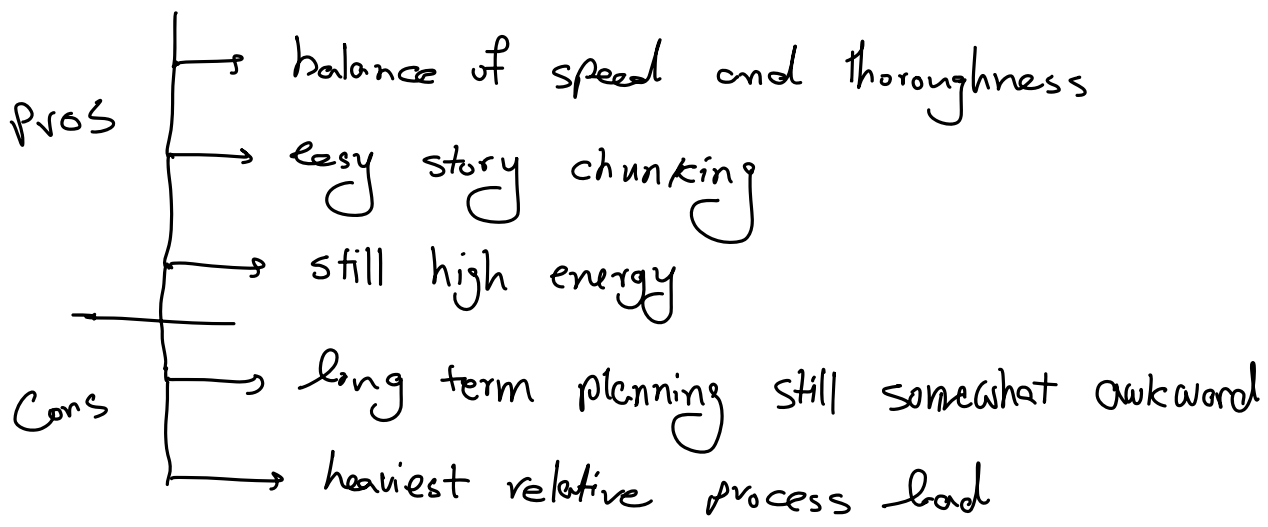 Pros
balance of speed and thoroughness
easy story chunking
still high energy
Cons
long term planning still somewhat awkward
heaviest relative process load